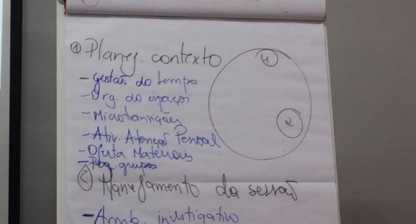 ① Planej. contexto
- gestão do tempo
- Org. do espaço
- Microtransições
- Ativ. Atenção Pessoal
- Oferta Materiais
- Peq. grupos
② Planejamento da sessão
- Amb. investigativo
1
2